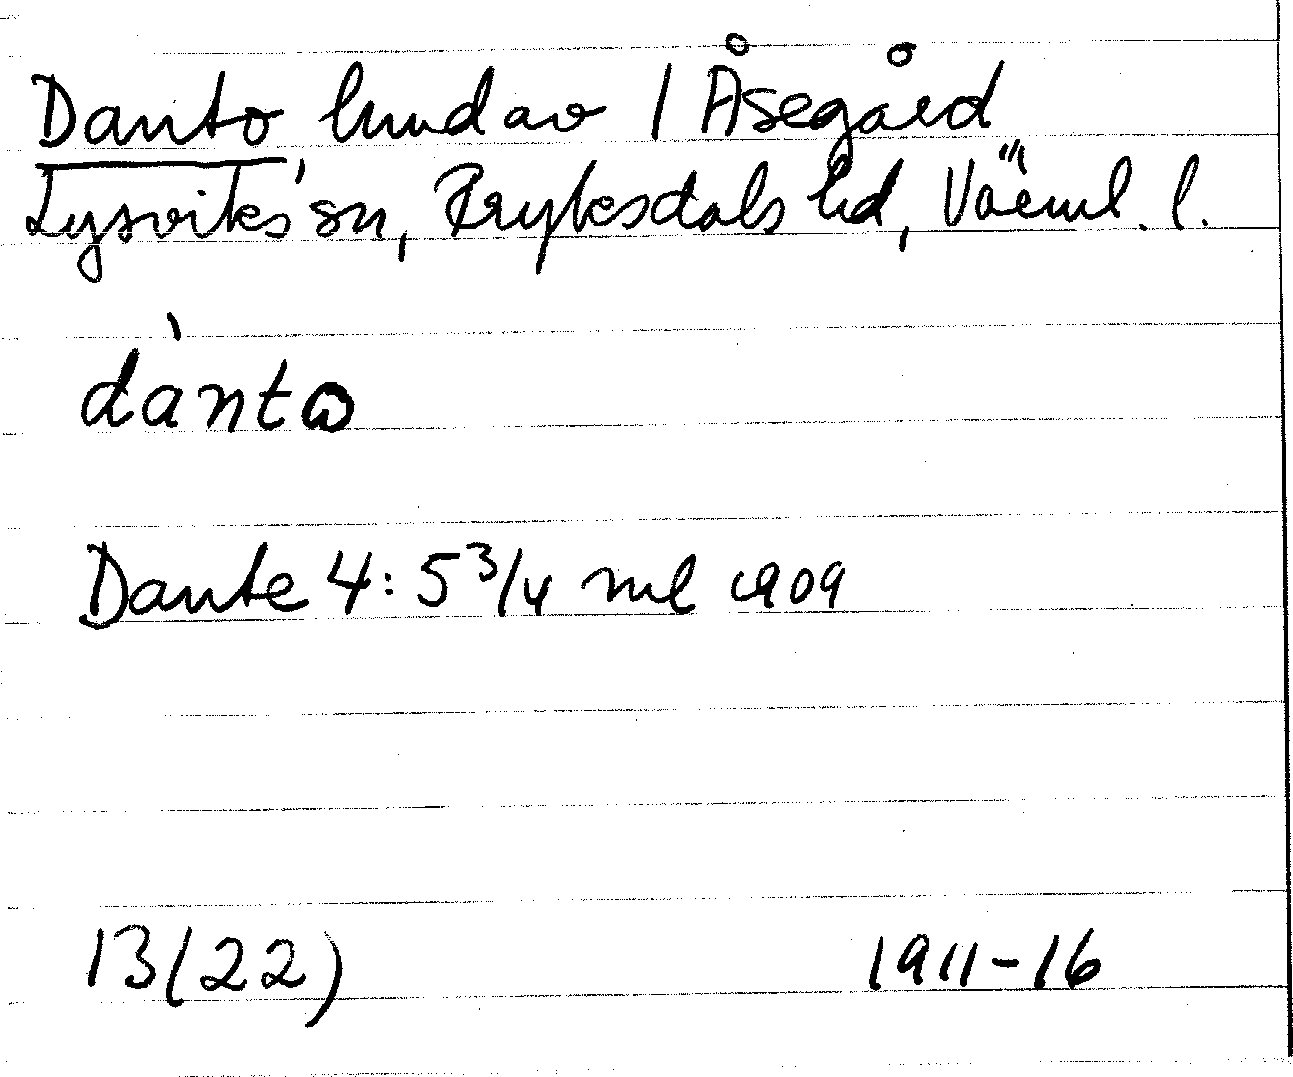 Danto hmd av 1 Åsegård
Lysviks sn, Fryksdals hd, Värml. l.
dànto
Dante 4: 5 3/4 ml 1909
13(22) 1911-16